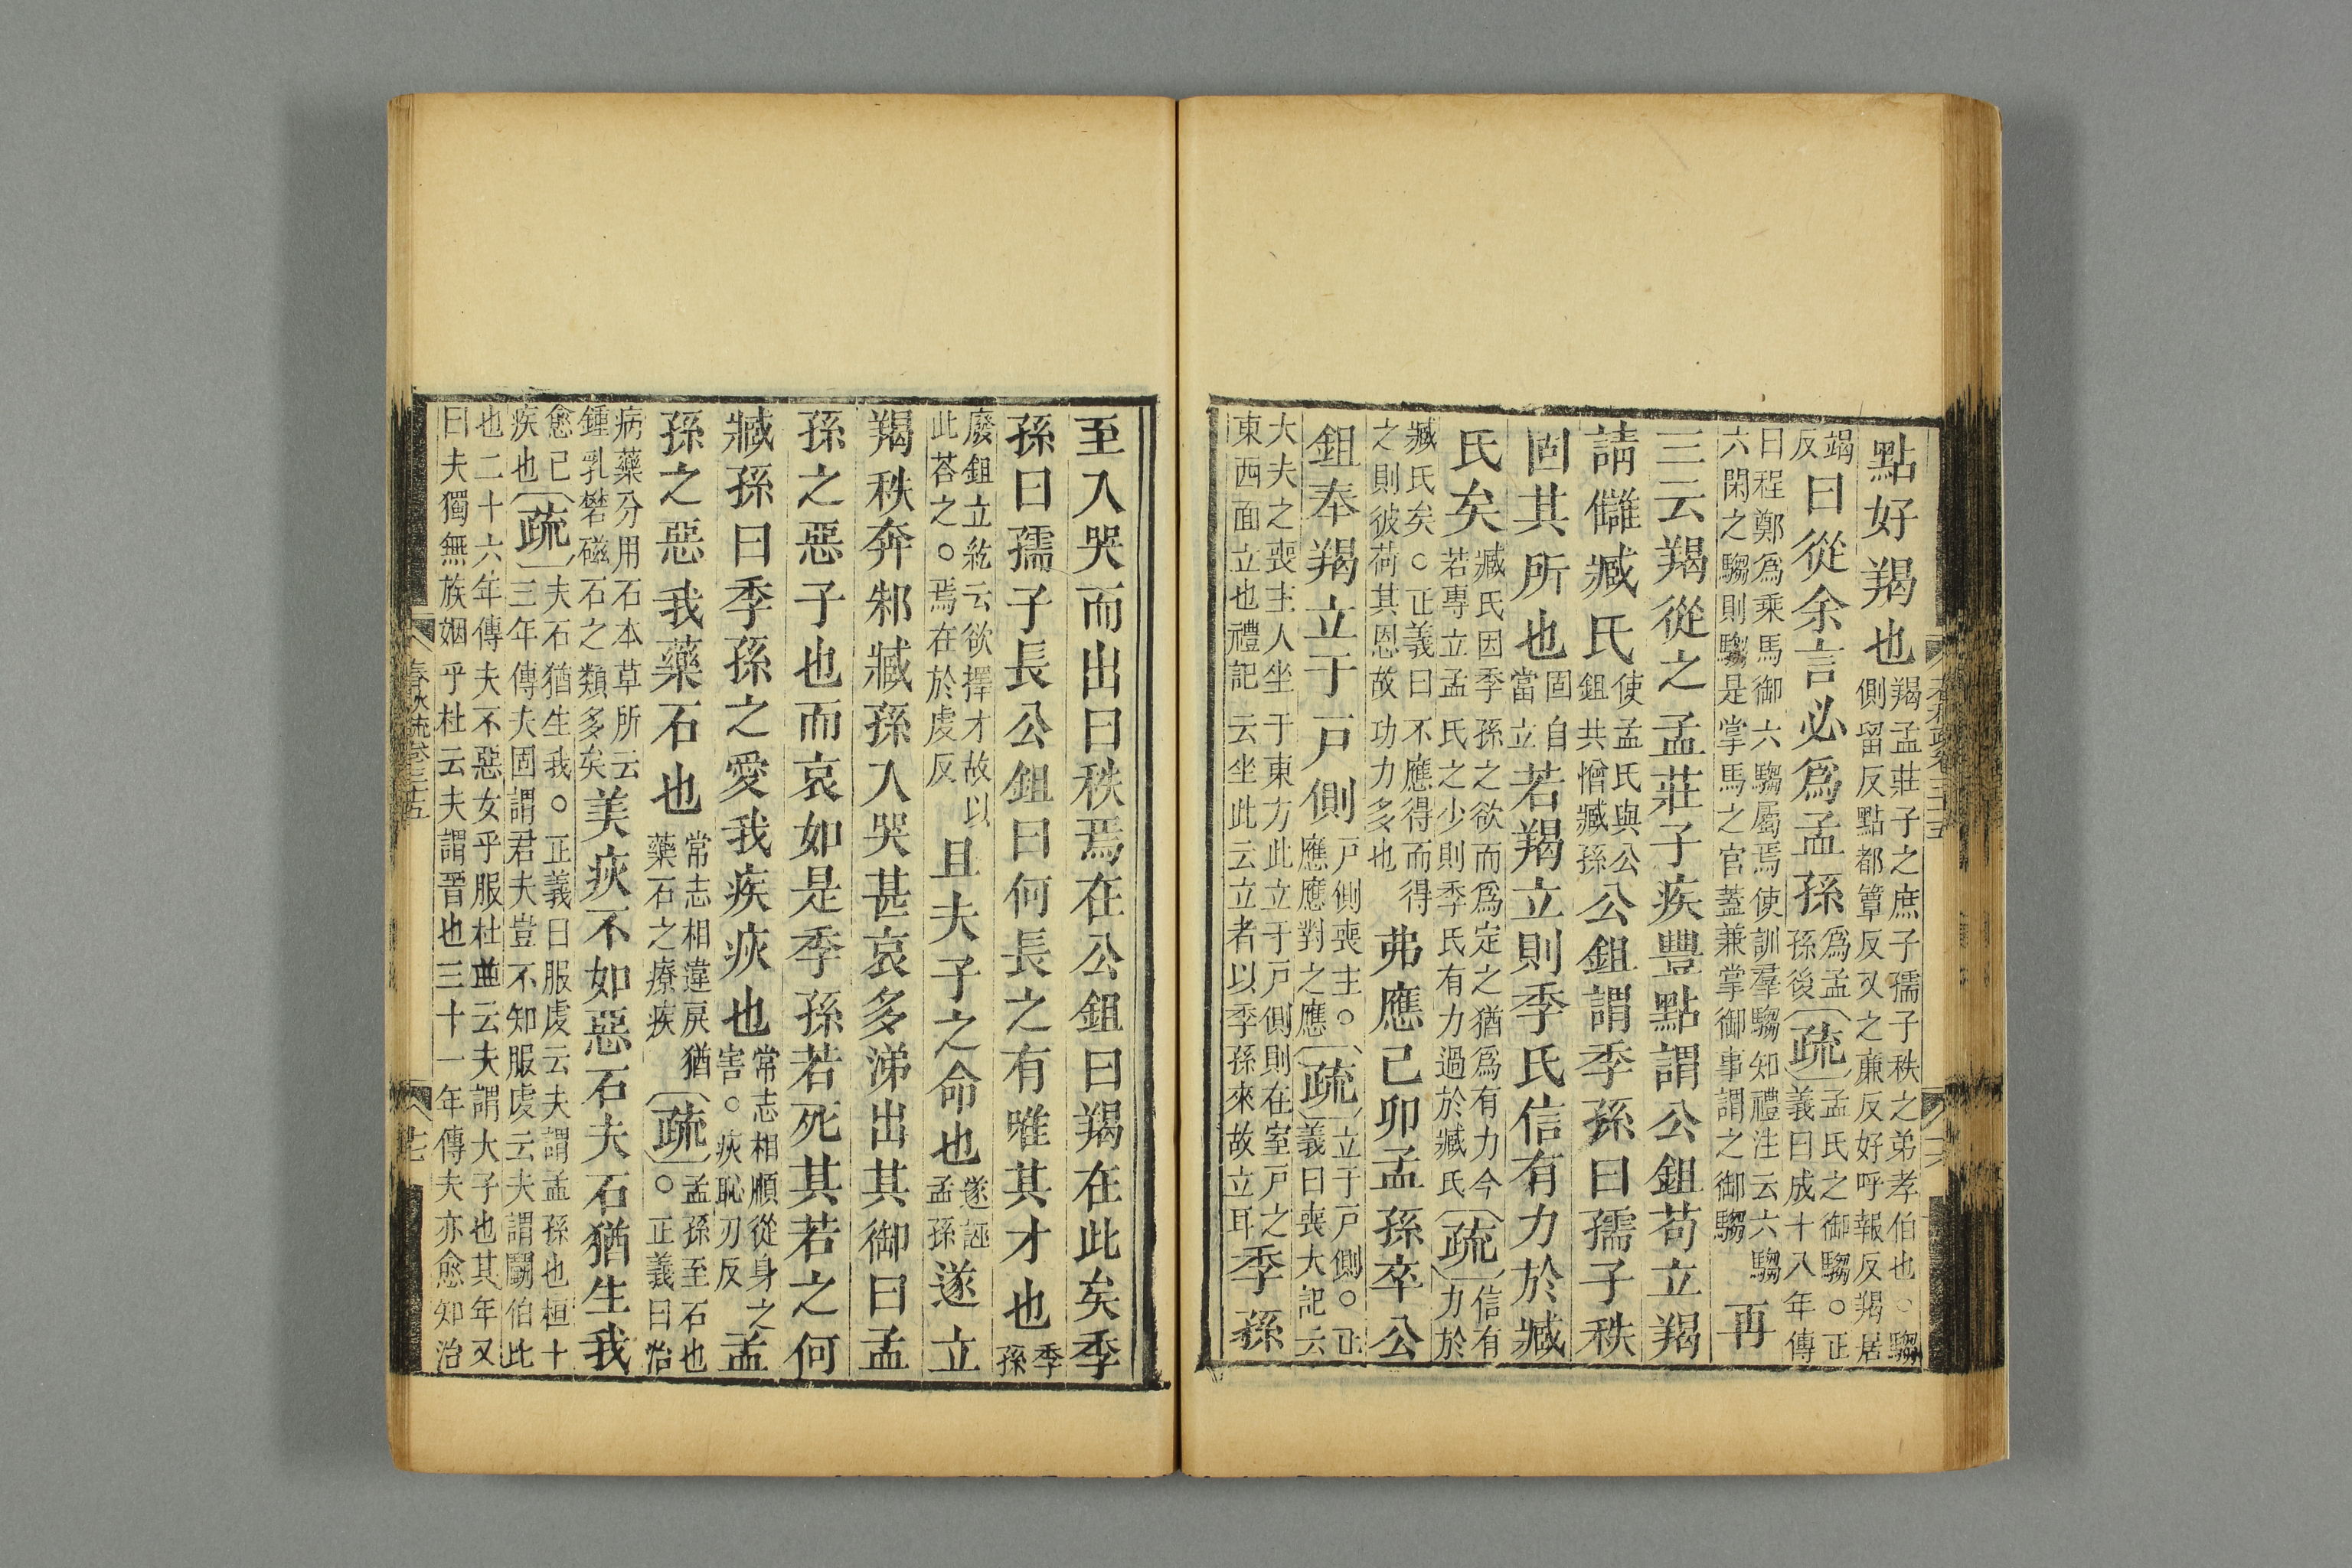 點好羯也羯孟莊子之庶子孺子秩之弟孝伯也○騶
側留反點都簟反又之廉反好呼報反羯居
竭
反曰從余言必爲孟孫爲孟
孫後疏孟氏之御騶○正
義曰成十八年傳
曰程鄭爲乘馬御六騶屬焉使訓羣騶知禮注云六騶
六閑之騶則騶是掌馬之官蓋兼掌御事謂之御騶再
三云羯從之孟莊子疾豐點謂公鉏苟立羯
請讎臧氏使孟氏與公
鉏共憎臧孫公鉏謂季孫曰孺子秩
固其所也固自
當立若羯立則季氏信有力於臧
氏矣臧氏因季孫之欲而爲定之猶爲有力今
若專立孟氏之少則季氏有力過於臧氏疏信有
力於
臧氏矣○正義曰不應得而得
之則彼荷其恩故功力多也弗應己卯孟孫卒公
鉏奉羯立于戸側戸側喪主○
應應對之應疏立于戸側○正
義曰喪大記云
大夫之喪主人坐于東方此立于戸側則在室戸之
東西面立也禮記云坐此云立者以季孫來故立耳季孫
至入哭而出曰秩焉在公鉏曰羯在此矣季
孫曰孺子長公鉏曰何長之有唯其才也季
孫
廢鉏立紇云欲擇才故以
此荅之○焉在於虔反且夫子之命也遂誣
孟孫遂立
羯秩奔邾臧孫入哭甚哀多涕出其御曰孟
孫之惡子也而哀如是季孫若死其若之何
臧孫曰季孫之愛我疾疢也常志相順從身之
害○疢恥刃反孟
孫之惡我藥石也常志相違戾猶
藥石之療疾疏孟孫至石也
○正義曰治
病藥分用石本草所云
鍾乳礬磁石之類多矣美疢不如惡石夫石猶生我
愈已
疾也疏夫石猶生我○正義曰服虔云夫謂孟孫也桓十
三年傳夫固謂君夫豈不知服虔云夫謂鬬伯比
也二十六年傳夫不惡女乎服杜並云夫謂大子也其年又
曰夫獨無族姻乎杜云夫謂晉也三十一年傳夫亦愈知治
春秋疏卷三十五
十七